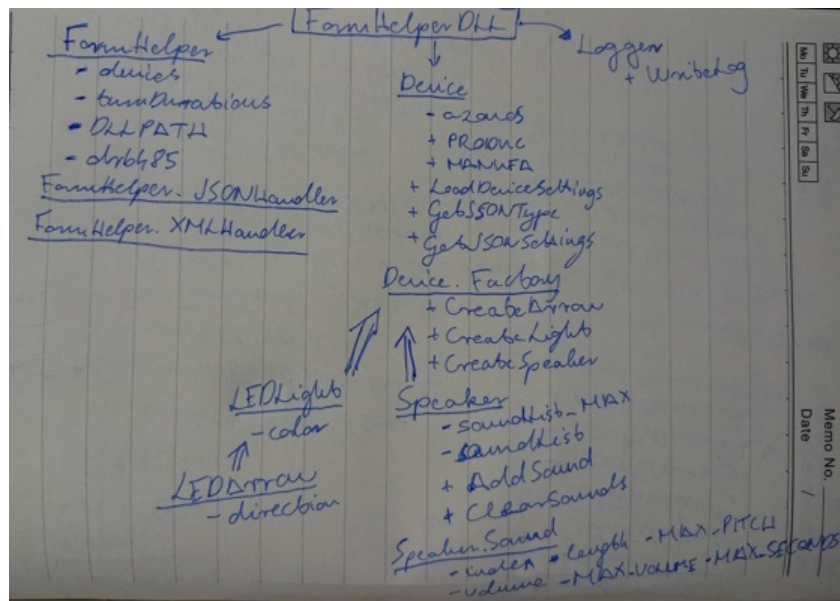 FormHelperDLL
FormHelper
- devices
- turnDurations
- DLLPATH
- drb485
FormHelper.JSONHandler
FormHelper.XMLHandler
Logger
+ WriteLog
Device
- azonos
+ PRODUC
+ MANUFA
+ LoadDeviceSettings
+ GetJSONType
+ GetJSONSettings
Device.Factory
+ CreateArrow
+ CreateLight
+ CreateSpeaker
LEDLight
- color
LEDArrow
- direction
Speaker
- soundList_MAX
- soundList
+ AddSound
+ ClearSounds
Speaker.Sound
- index - length - MAX_PITCH
- volume - MAX_VOLUME - MAX_SECONDS
Mo Tu We Th Fr Sa Su
Memo No.
Date /